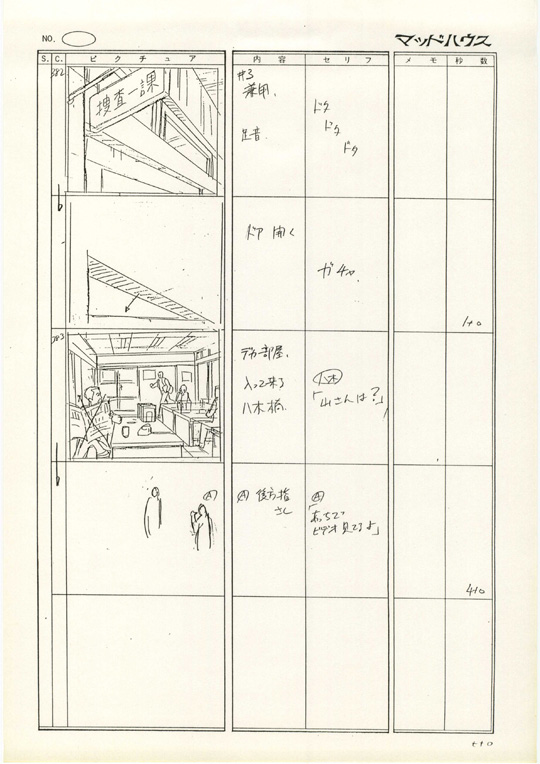 NO.
マッドハウス
S. C. ピクチュア 内容 セリフ メモ 秒数
382
捜査一課
#3
兼用.
足音.
ドタ
ドタ
ドタ
ドア 開く
ガチャ
1+0
383
デカ部屋.
入って来る
八木橋.
八木
「山さんは?」
A
A 後方指
さし
A
「あっちで
ビデオ見てるよ」
4+0